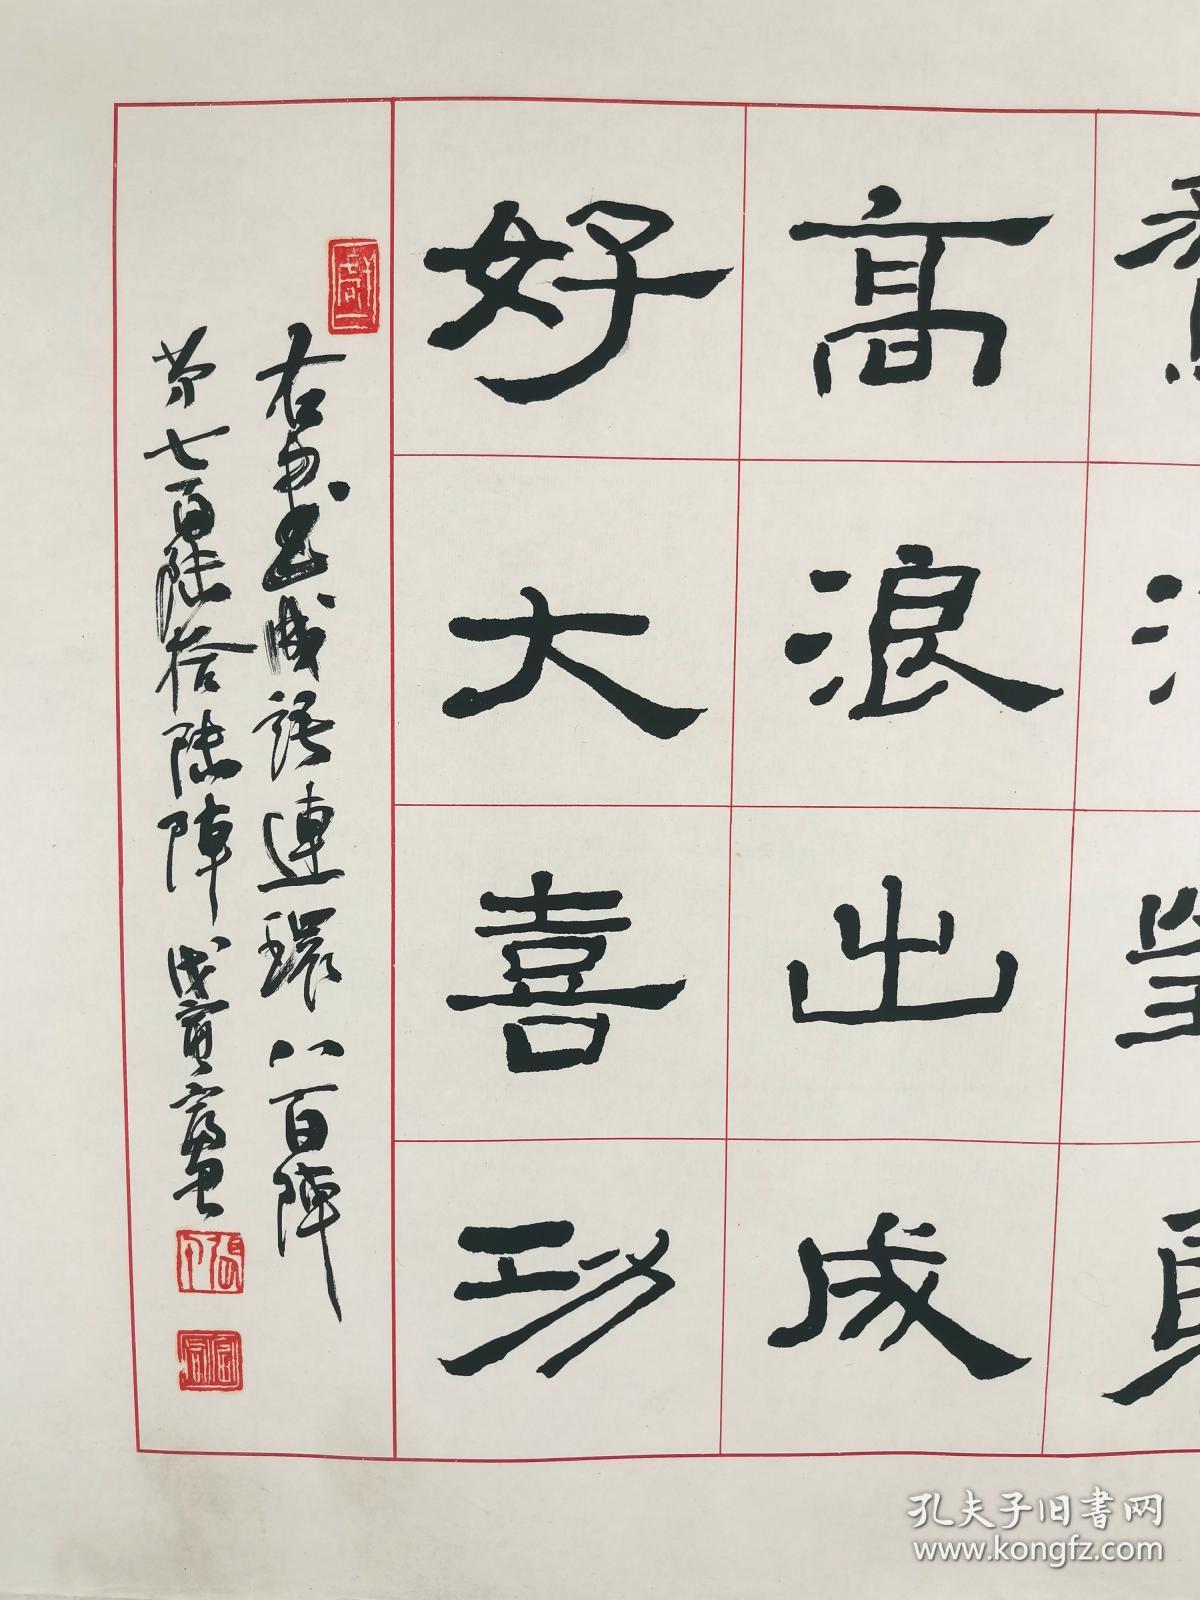 高浪出成
好大喜功
右書成語連環八百陣
第七百陆拾陆陣戊寅
孔夫子旧書网
www.kongfz.com